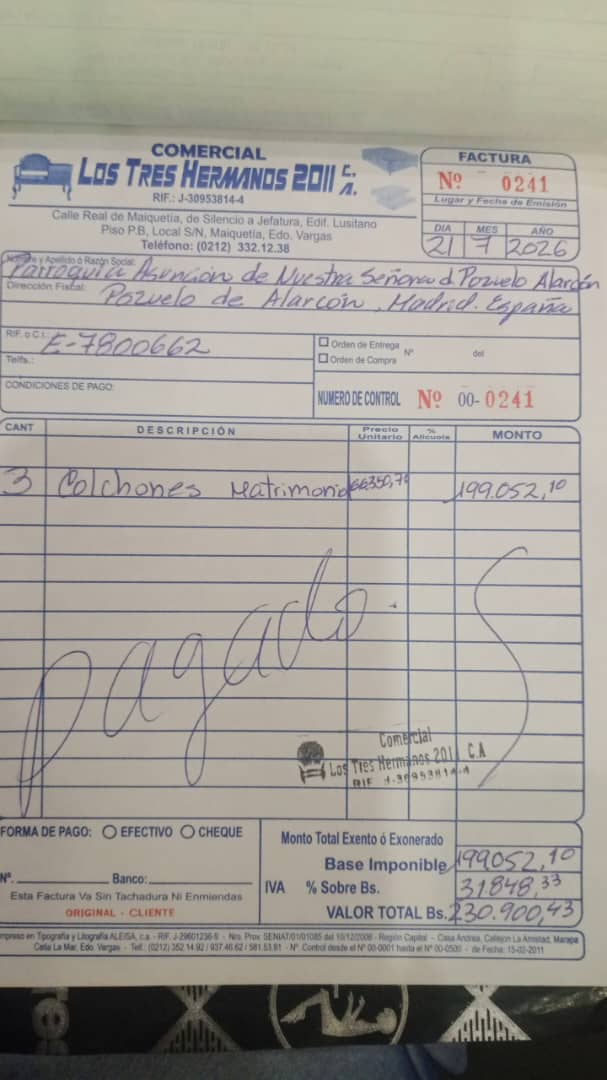 COMERCIAL
LOS TRES HERMANOS 2011 C.A.
RIF.: J-30953814-4
Calle Real de Maiquetía, de Silencio a Jefatura, Edif. Lusitano
Piso P.B, Local S/N, Maiquetía, Edo. Vargas
Teléfono: (0212) 332.12.38
FACTURA
Nº 0241
Lugar y Fecha de Emisión
DIA MES AÑO
21 7 2026
Nombre y Apellido ó Razón Social:
Parroquia Asunción de Nuestra Señora d Pozuelo Alarcón
Dirección Fiscal: Pozuelo de Alarcón, Madrid. España
RIF. o C.I.: E-7800662
Telfs.:
Orden de Entrega
Orden de Compra
Nº del
CONDICIONES DE PAGO:
NUMERO DE CONTROL Nº 00-0241
CANT DESCRIPCIÓN Precio Unitario % Alicuota MONTO
3 Colchones Matrimonial 66350,70 199.052,10
pagado
Comercial
Los Tres Hermanos 2011 C.A
RIF J-30953814-4
FORMA DE PAGO: EFECTIVO CHEQUE
Nº. Banco:
Esta Factura Va Sin Tachadura Ni Enmiendas
ORIGINAL - CLIENTE
Monto Total Exento ó Exonerado
Base Imponible 199052,10
IVA % Sobre Bs. 31848,33
VALOR TOTAL Bs. 230.900,43
Impreso en Tipografía y Litografía ALEISA, c.a. - RIF. J-29601236-9 - Nro. Prov. SENIAT/01/01085 del 10/12/2008 - Región Capital - Casa Andrea, Callejon La Amistad, Marapa
Catia La Mar, Edo. Vargas - Telf.: (0212) 352.14.92 / 937.46.62 / 581.53.81 - Nº Control desde el Nº 00-0001 hasta el Nº 00-0500 - de Fecha: 15-02-2011